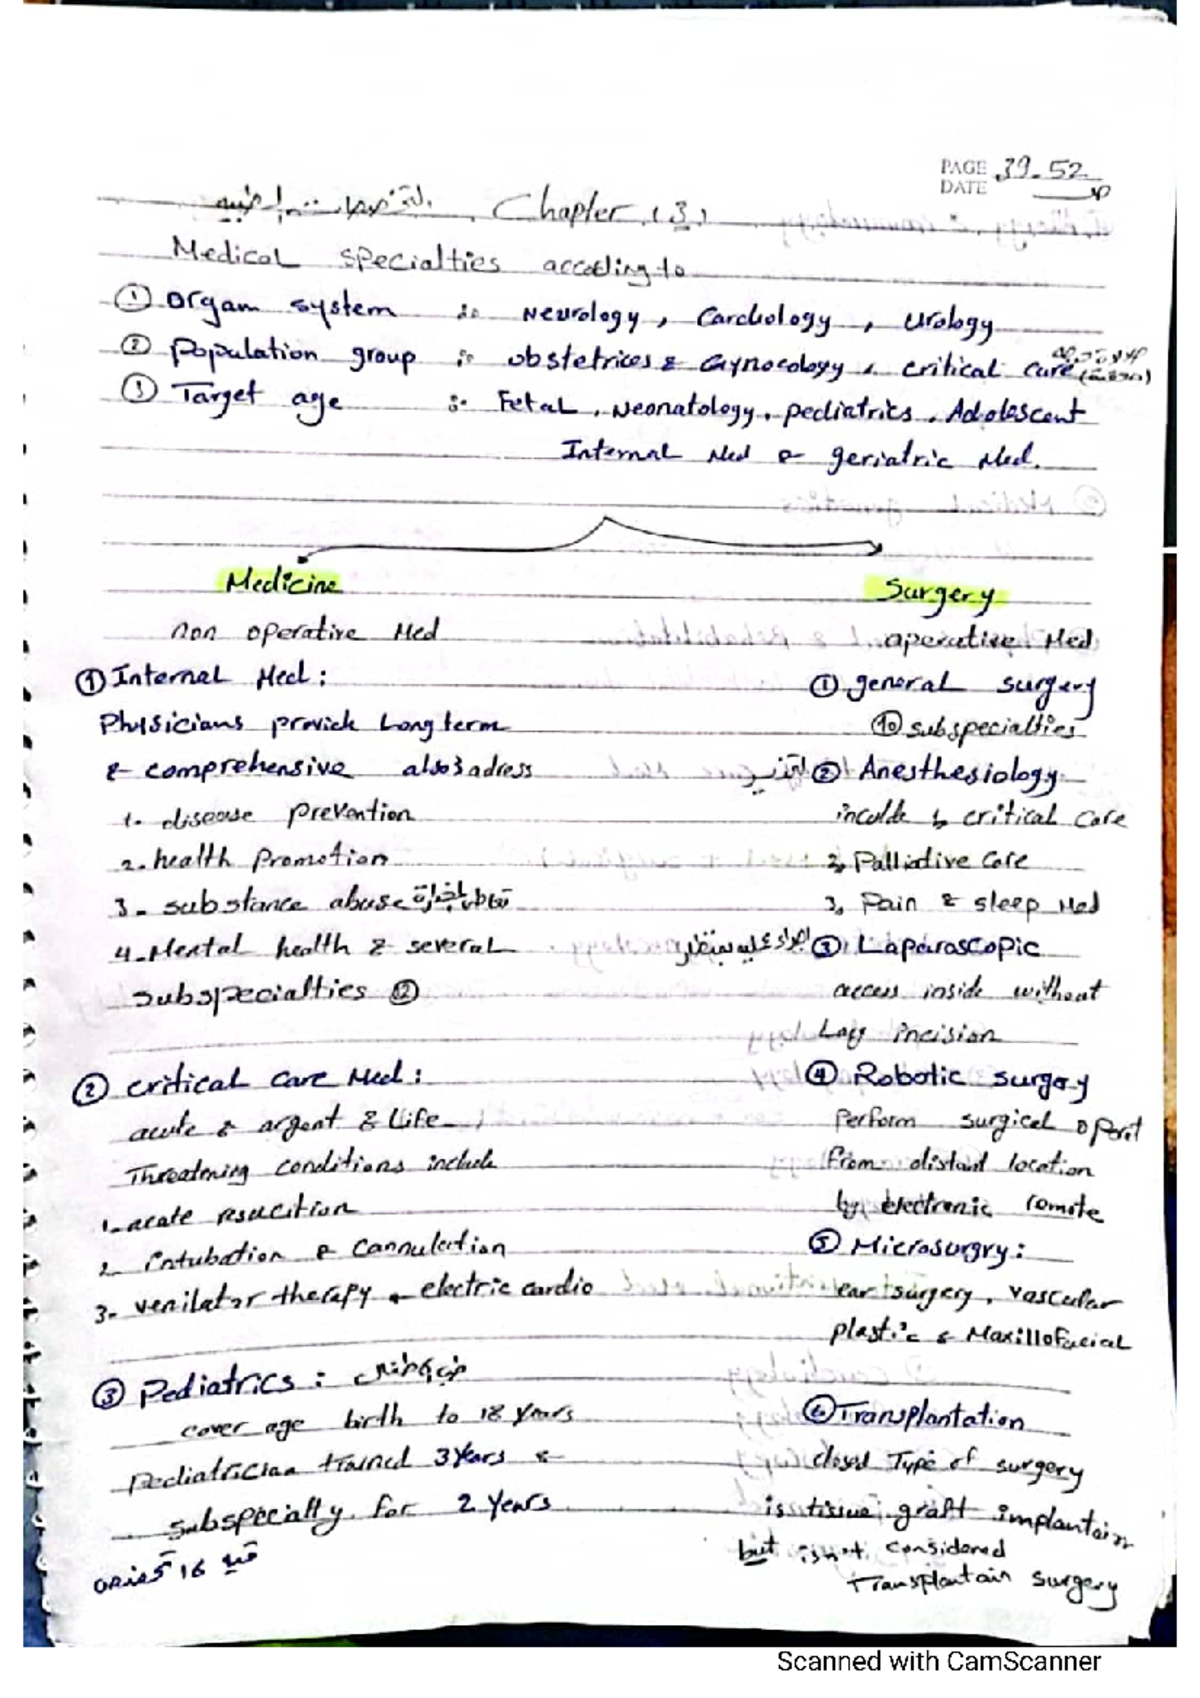 PAGE 39-52
DATE
Chapter (3)
Medical specialties according to
① organ system :: Neurology, Cardiology, Urology
② population group :: obstetrices & Gynocology, critical care
③ Target age :: Fetal, Neonatology, pediatrics, Adolescent
Internal Med & geriatric Med.
Medicine
non operative Med
① Internal Med:
Physicians provide Long term
& comprehensive also adress
1. disease prevention
2. health promotion
3- substance abuse
4. Mental health & several
subspecialties
② critical care Med:
acute & argent & Life
Threatning conditions include
1. acute
2. intubation & Cannulation
3- venilator therapy & electric cardio
③ Pediatrics:
cover age birth to 18 years
pediatrician trained 3 years &
subspecially for 2 years
Surgery
operative Med
① general surgery
⑩ subspecialties
② Anesthesiology
critical care
2, Palliative care
3, Pain & sleep Med
③ Laparoscopic
access inside without
incision
④ Robotic surgery
perform surgical
from distant location
by electronic romote
⑤ Microsurgry:
ear surgery, vascular
plastic & Maxillofacial
⑥ Transplantation
closed Type of surgery
is tissue graft implantain
but is not considered
Transplantain surgery
Scanned with CamScanner